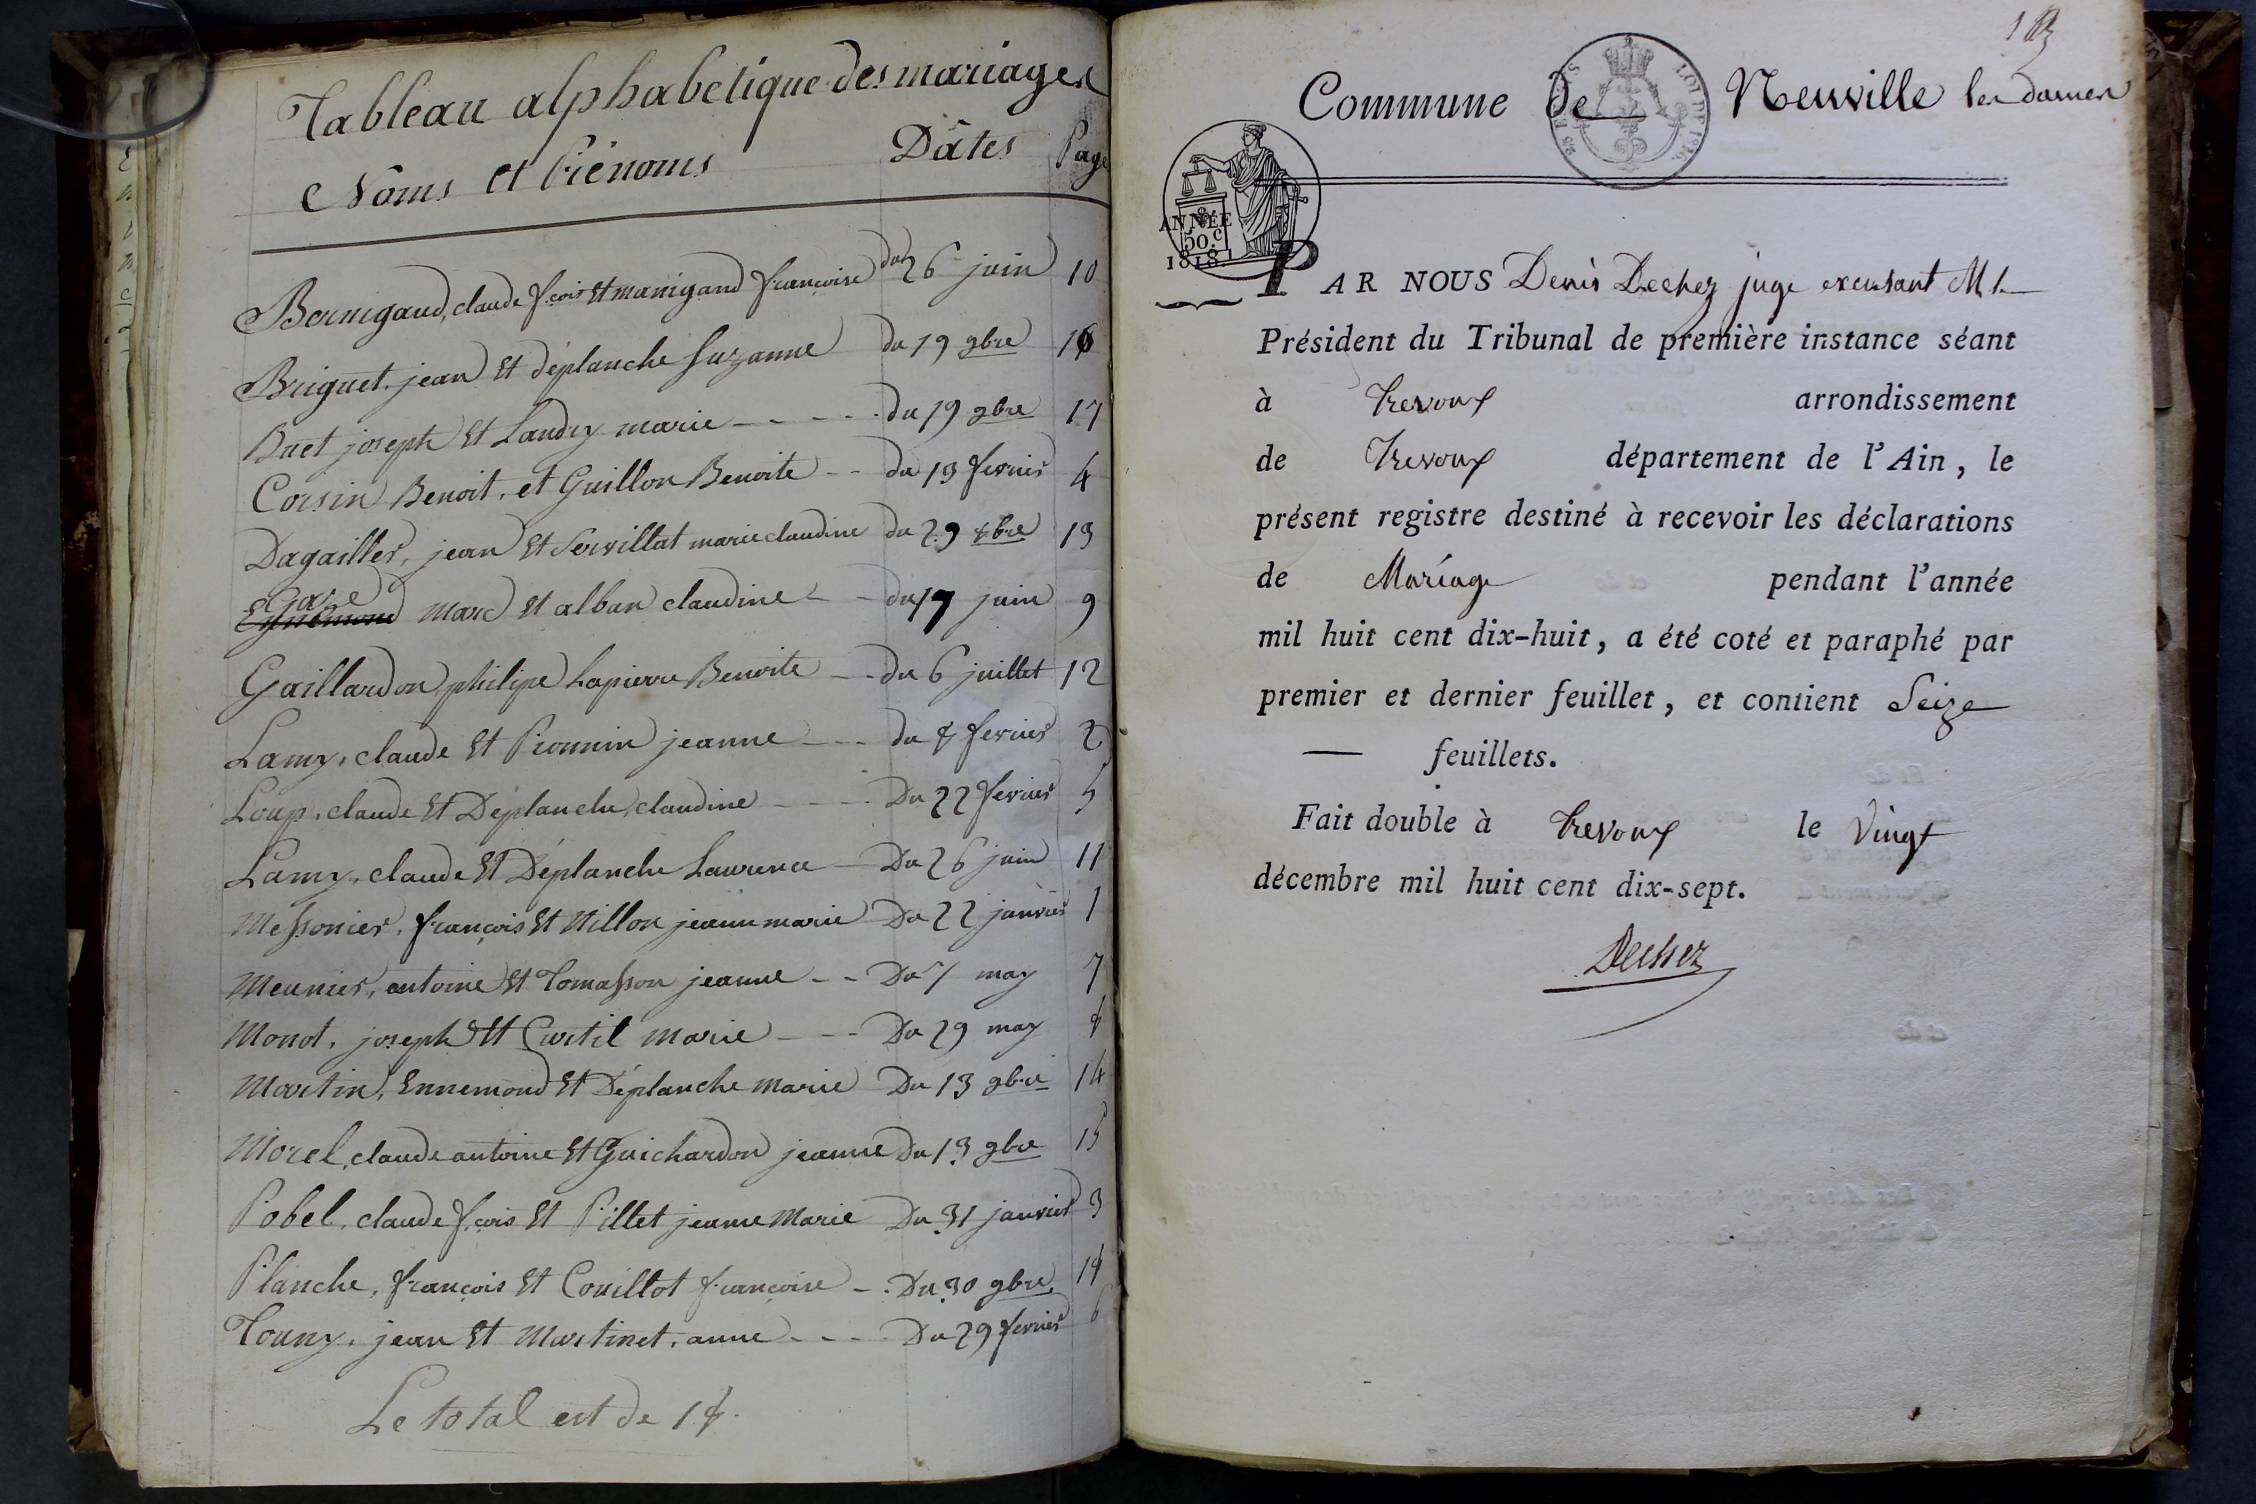 Tableau alphabetique des mariages
Nôms et Prénoms Dâtes Page
Bernigaud, claude f.çois et manigand françoise du 26 juin 10
Briguet, jean et déplanche Suzanne du 19 9bre 16
Buet joseph et Landry marie du 19 9bre 17
Corsin Benoit, et Guillon Benoite du 13 fevrier 4
Dagallier, jean et Servillat marie claudine du 29 8bre 13
Gare
Marc et alban claudine du 17 juin 9
Gaillardon, philipe Lapierre Benoite du 6 juillet 12
Lamy, claude et Pronnin jeanne du 8 fevrier 2
Loup, claude et Déplanche, claudine Du 22 fevrier 5
Lamy, claude et Déplanche Laurence Du 26 juin 11
Messonier, françois et Millon jeanne marie Du 22 janvier 1
Meunier, antoine et Tomasson jeanne Du 7 may 7
Monot, joseph et Curtil Marie Du 29 may 8
Martin, Ennemond et Déplanche Marie Du 13 9bre 14
Morel, claude antoine et Guichardon jeanne Du 13 9bre 15
Pobel, claude f.çois et Pillet jeanne Marie Du 31 janvier 3
Planche, françois et Couillot françoise Du 30 9bre 18
Touny, jean et Martinet, anne Du 29 fevrier 6
Le total est de 18.
Commune de Neuville les dames
ANNÉE
50.c
1818
PAR NOUS Denis Dechez juge excusant M. le
Président du Tribunal de première instance séant
à Trevoux arrondissement
de Trevoux département de l'Ain, le
présent registre destiné à recevoir les déclarations
de Mariage pendant l'année
mil huit cent dix-huit, a été coté et paraphé par
premier et dernier feuillet, et contient Seize
feuillets.
Fait double à Trevoux le Vingt
décembre mil huit cent dix-sept.
Dechez